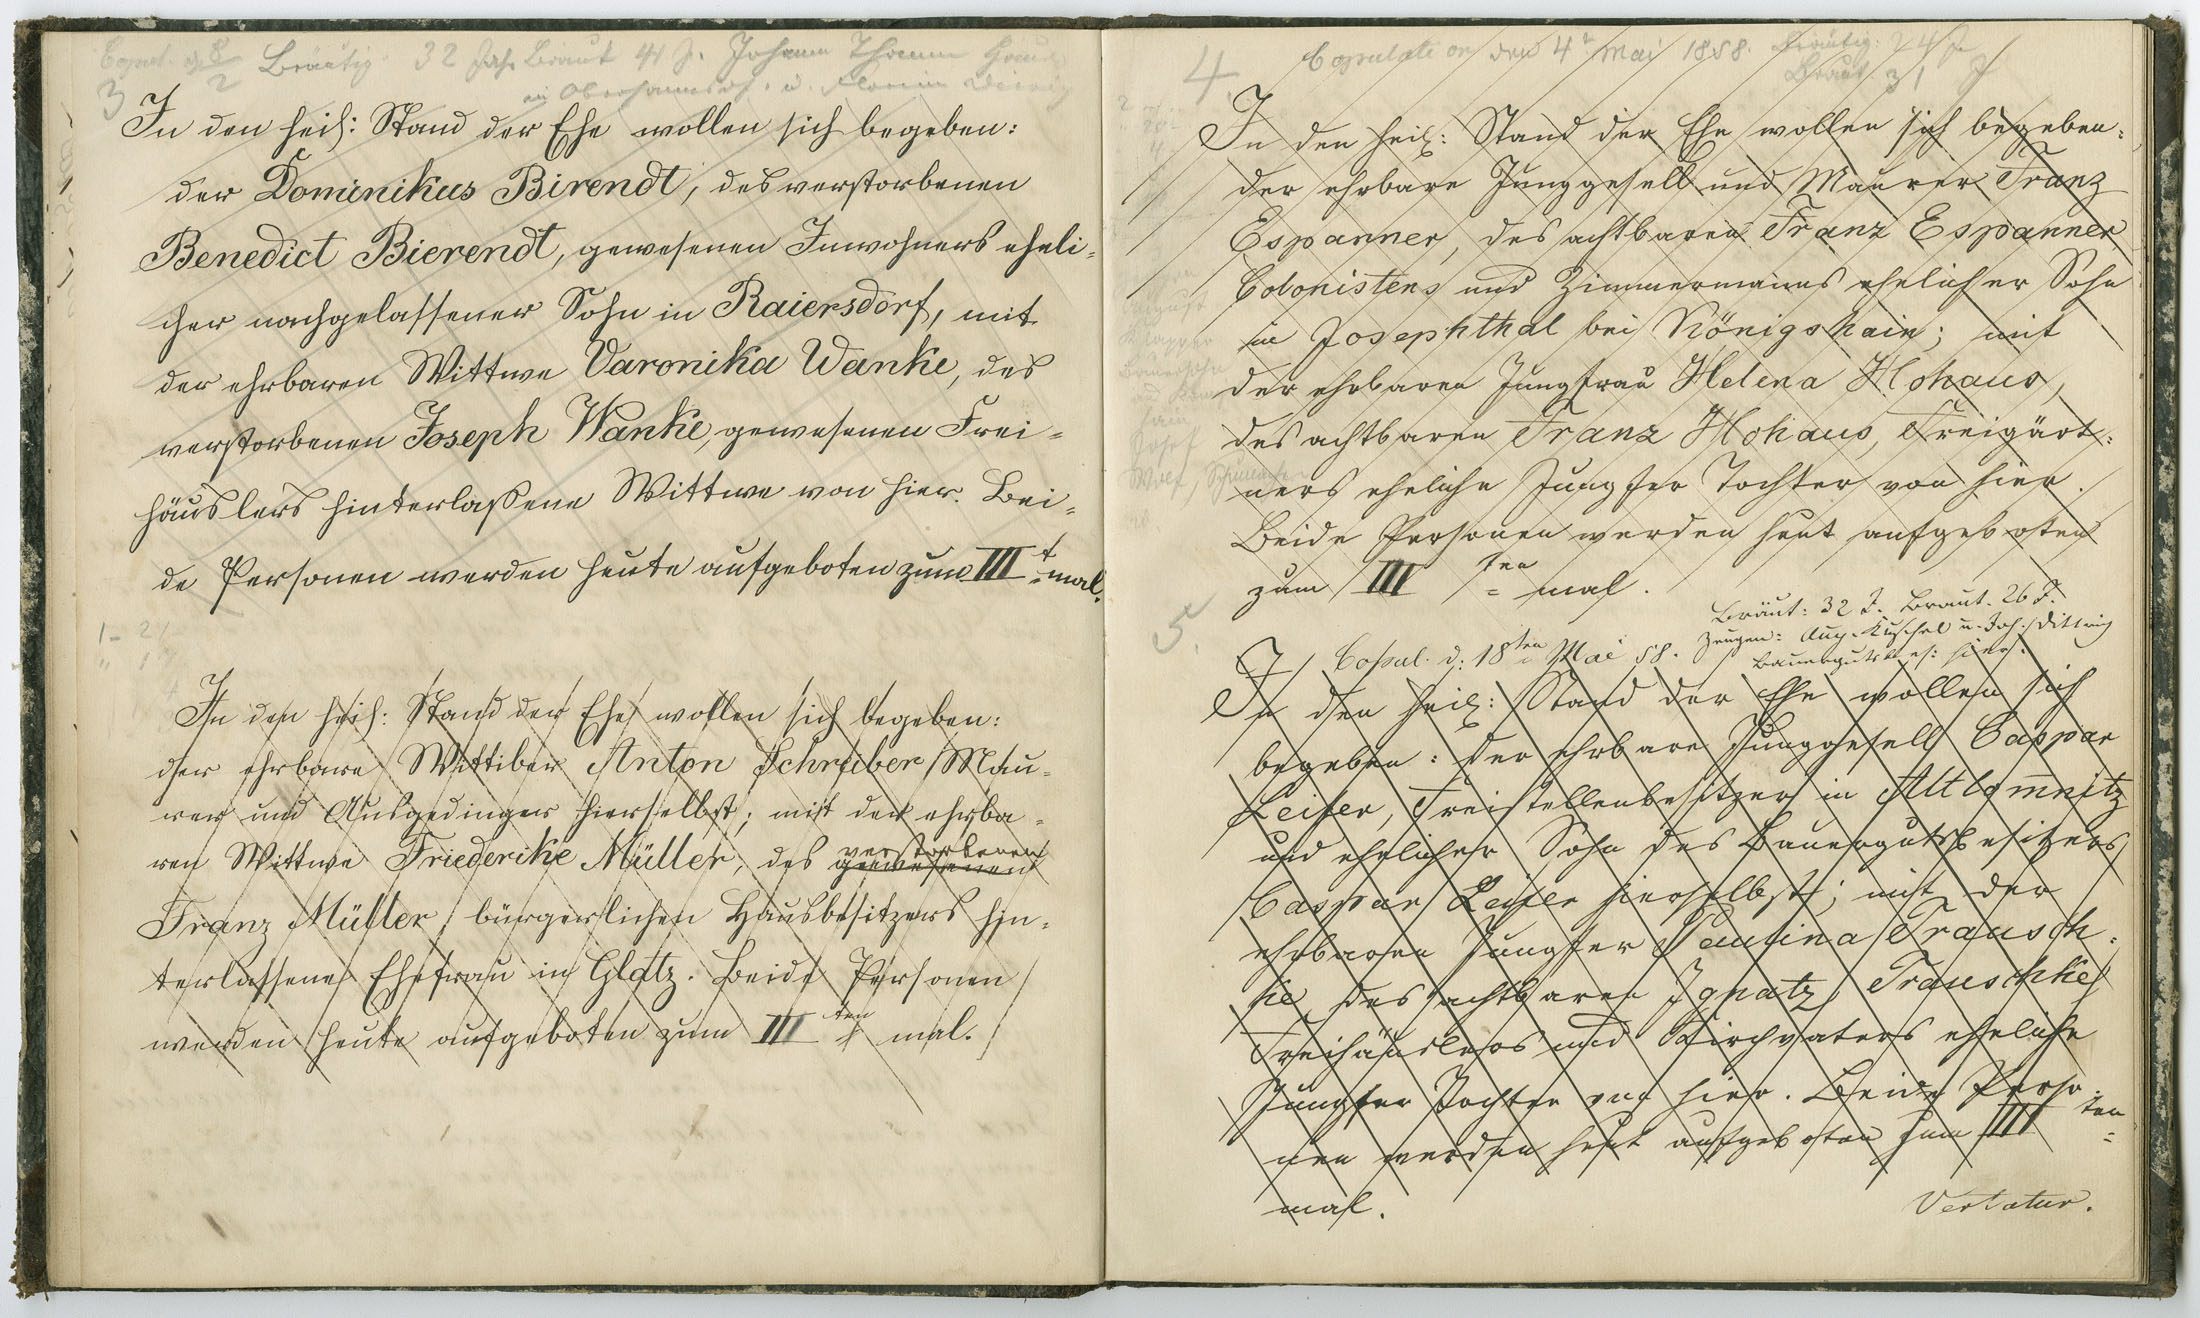 3
Copul. d. 8/2 Bräutig. 32 Jahr Braut 41 J. Johann Thamm
in u. Florian
In den heil: Stand der Ehe wollen sich begeben:
der Dominikus Birendt, des verstorbenen
Benedict Bierendt, gewesenen Inwohners eheli-
cher nachgelassener Sohn in Raiersdorf, mit
der ehrbaren Wittwe Varonika Wanke, des
verstorbenen Joseph Wanke, gewesenen Frei-
häuslers hinterlaßene Wittwe von hier. Bei-
de Personen werden heute aufgeboten zum III t mal.
In den heil: Stand der Ehe wollen sich begeben:
der ehrbare Wittiber Anton Schreiber Mau-
rer und Ausgedinger hierselbst; mit der ehrba-
ren Wittwe Friederike Müller, des gewesenen verstorbenen
Franz Müller bürgerlichen Hausbesitzers hin-
terlassene Ehefrau in Glatz. Beide Personen
werden heute aufgeboten zum III ten mal.
4.
Copulation den 4t Mai 1858. Bräutig: 24 J
Braut 31 J
In den heil: Stand der Ehe wollen sich begeben:
der ehrbare Junggesell und Maurer Franz
Espanner, des achtbaren Franz Espanner
Colonistens und Zimmermanns ehelicher Sohn
in Josephthal bei Königshain; mit
der ehrbaren Jungfrau Helena Hohaus,
des achtbaren Franz Hohaus, Freigärt-
ners eheliche Jungfer Tochter von hier.
Beide Personen werden heut aufgeboten
zum III ten mal.
5.
Bräut: 32 J. Braut. 26 J.
Copul. d: 18ten Mai 58. Zeugen: Aug. Kuschel u. Joh. Dittrich
Bauergutsbes: hier.
In den heil: Stand der Ehe wollen sich
begeben: der ehrbare Junggesell Caspar
Leifer, Freistellenbesitzer in Altlomnitz
und ehelicher Sohn des Bauergutsbesitzers
Caspar Leifer hierselbst; mit der
ehrbaren Jungfer Paulina Trausch-
ke des achtbaren Ignatz Trauschke
Freihäuslers und Kirchvaters eheliche
Jungfer Tochter von hier. Beide Perso-
nen werden heut aufgeboten zum III ten
mal.
Vertatur.